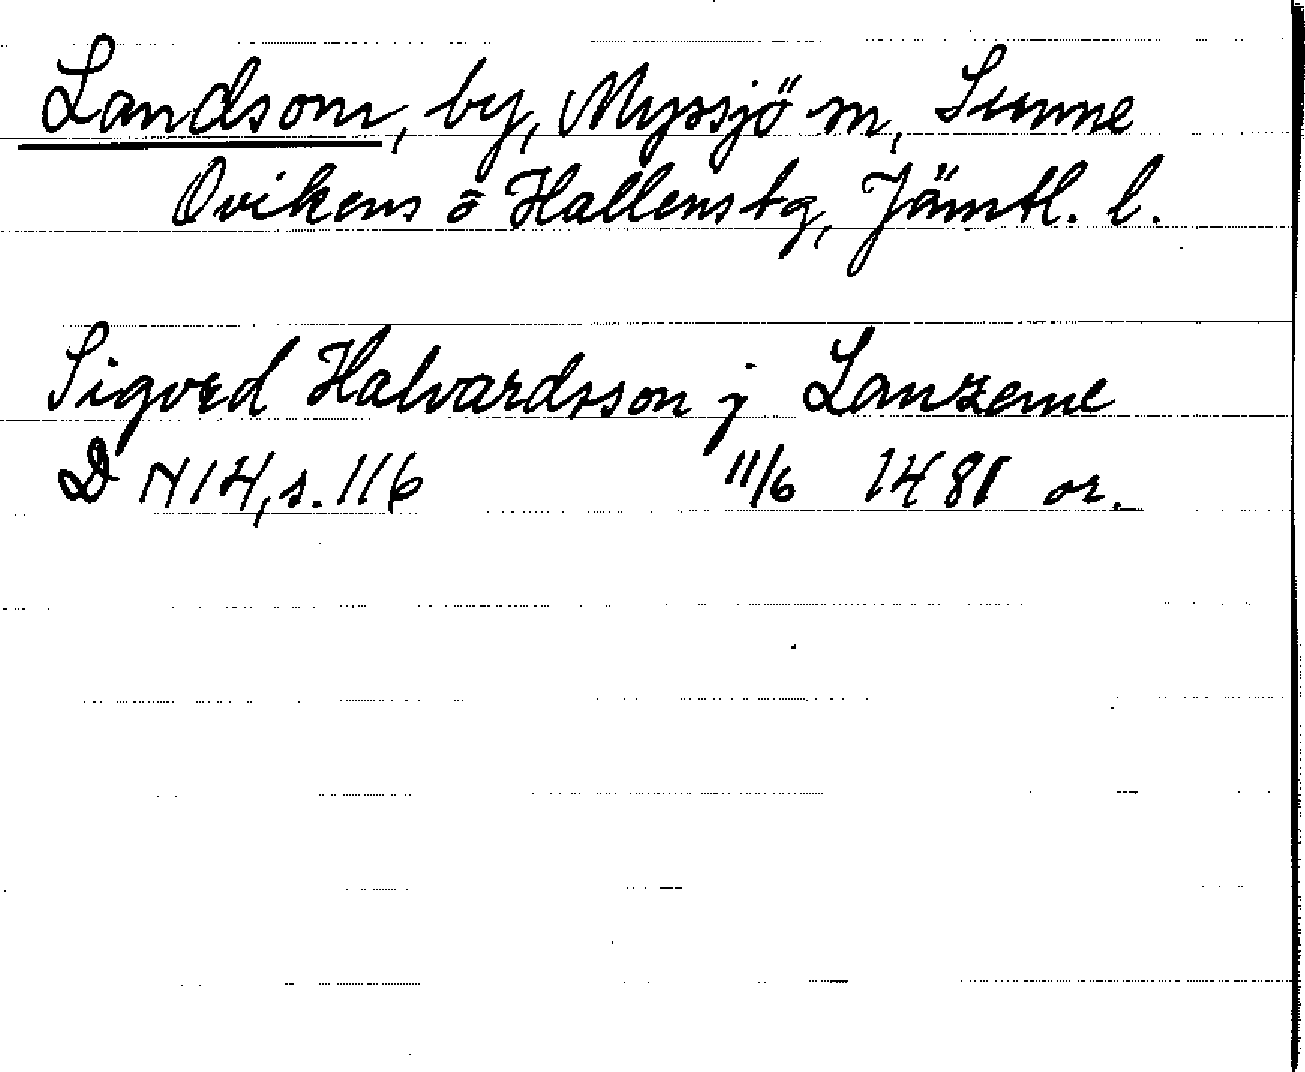 Landsom, by, Myssjö sn, Sunne
Ovikens o Hallens tg, Jämtl. l.
Sigved Halvardsson j Lanzeme
DN 14, s. 116 11/6 1481 or.